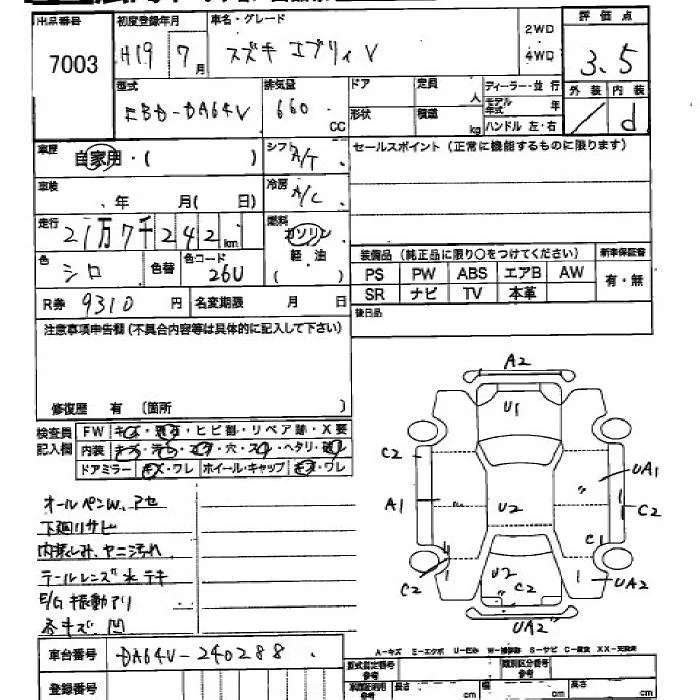 出品番号 初度登録年月 車名・グレード 2WD 評価点
7003 H19 7月 スズキ エブリィ V 4WD 3.5
型式 排気量 ドア 定員 人 ディーラー・並行 外装 内装
EBD-DA64V 660 CC 形状 積載 kg モデル年式 年 ハンドル 左・右 / d
車歴 自家用・( ) シフト A/T セールスポイント(正常に機能するものに限ります)
車検 年 月( 日) 冷房 A/C
走行 21万7千242km 燃料 ガソリン 軽油 ( )
色 シロ 色替 色コード 26U
装備品(純正品に限り○をつけてください) 新車保証書
PS PW ABS エアB AW 有・無
SR ナビ TV 本革
R券 9310円 名変期限 月 日
後日品
注意事項申告欄(不具合内容等は具体的に記入して下さい)
修復歴 有 (箇所 )
検査員記入欄 FW キズ・ ・ヒビ割・リペア跡・X要
内装 ・穴・ ・ヘタリ・
ドアミラー キズ・ワレ ホイール・キャップ キズ・ワレ
オールペンW、アセ
下廻りサビ
内張しみ、ヤニ汚れ
テールレンズ水テキ
E/G振動アリ
凹
A2
U1
C2 UA1
A1 U2 C2
C1
C2 U2 C2 UA2
UA2
A-キズ E-エクボ U-凹 W-補修跡 S-サビ C-腐食 XX-交換済
車台番号 DA64V-240288
型式指定番号 参考 類別区分番号 参考
登録番号 参考 長さ cm 幅 cm 高さ cm